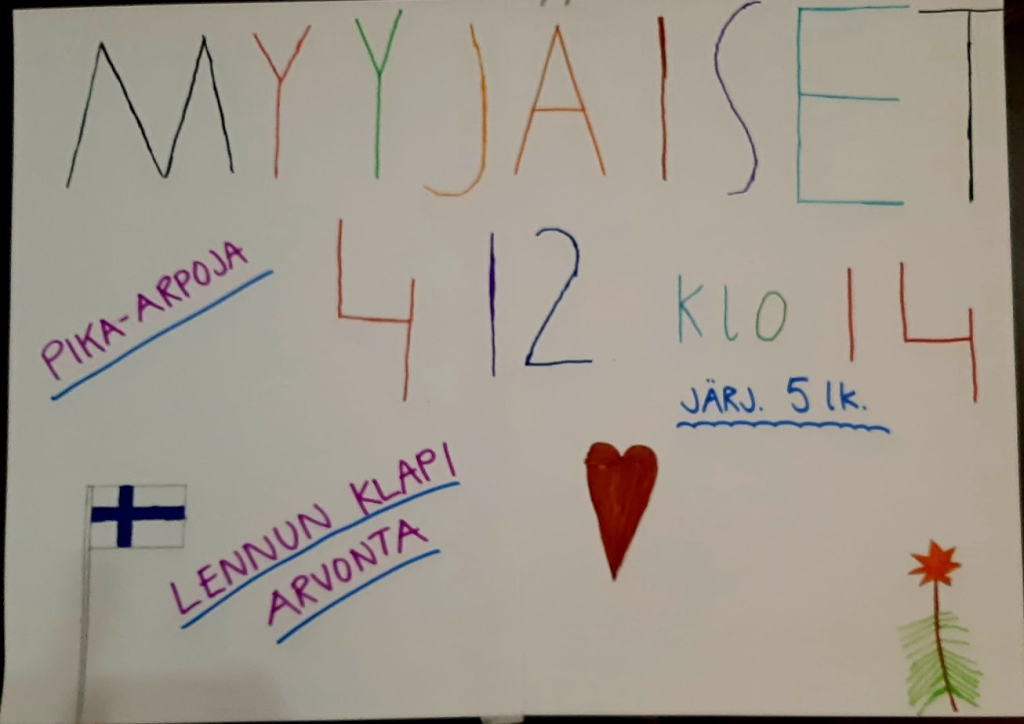 MYYJÄISET
4 12 KLO 14
PIKA-ARPOJA
JÄRJ. 5 lk.
LENNUN KLAPI
ARVONTA